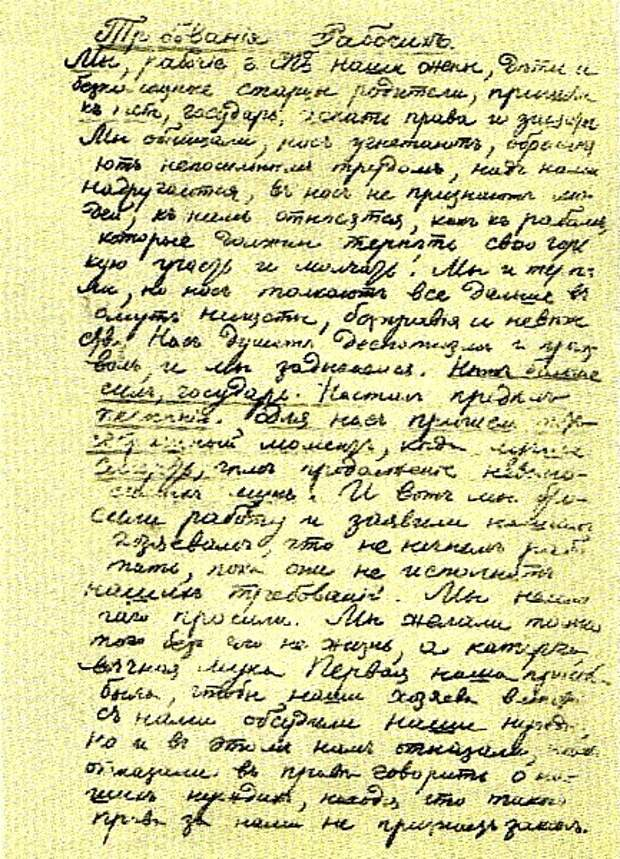 Требованiя Рабочихъ.
Мы, рабочiе наши жены, дѣти и
старцы родители, пришли
къ государь, искать права и защиты
Мы обнищали, насъ угнетаютъ, обремен
яютъ непосильнымъ трудомъ, надъ нами
надругаются, въ насъ не признаютъ лю
дей, къ намъ относятся, какъ къ рабамъ,
которые должны терпѣть свою горь
кую участь и молчать. Мы и терпѣ
ли, но насъ толкаютъ все дальше въ
омутъ нищеты, безправiя и невѣже
ства. Насъ душитъ деспотизмъ и произ
волъ, и мы задыхаемся. Нѣтъ больше
силъ, государь. Насталъ предѣлъ
терпѣнiя. Для насъ пришелъ
моментъ, когда лучше
смерть, чѣмъ продолженiе невыно-
мукъ. И вотъ мы бро-
сили работу и заявили нашимъ
хозяевамъ, что не начнемъ рабо
тать, пока они не исполнятъ
нашихъ требованiй. Мы немно
гаго просили. Мы желали только
того безъ чего не жизнь, а каторга
вѣчная мука Первая наша просьба
была, чтобы наши хозяева вмѣстѣ
съ нами обсудили наши нужды
но и въ этомъ намъ отказали,
отказали въ правѣ говорить о на-
шихъ нуждахъ, находя что такого
права за нами не признаетъ законъ.